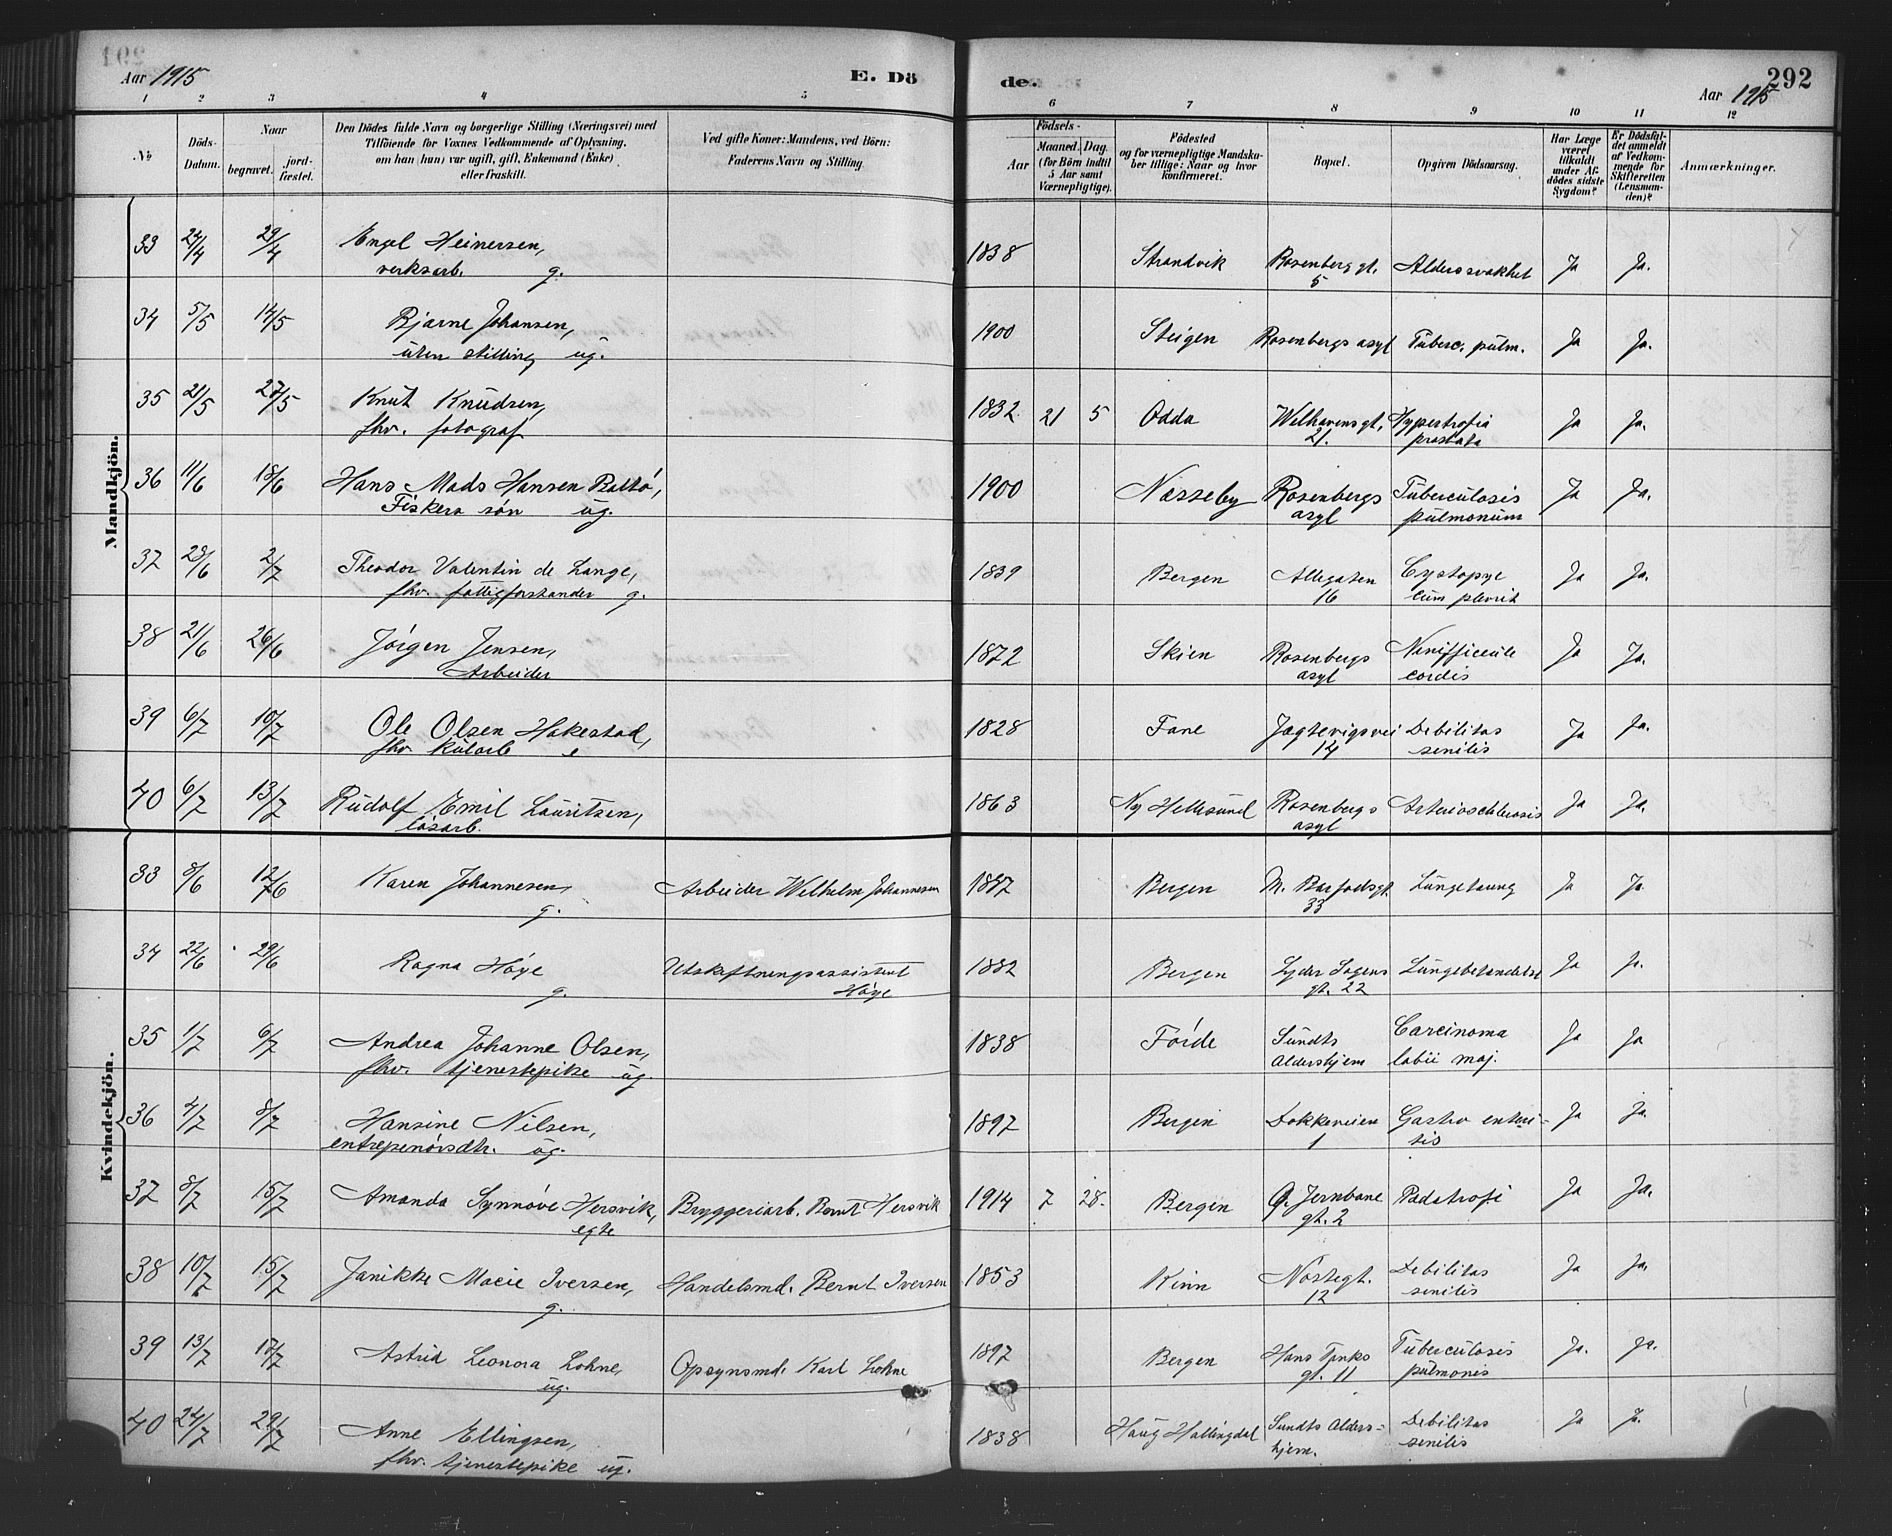 Aar 1915
E. Dö
de.
292
Aar 1915
1 2 3 4 5 6 7 8 9 10 11 12
№
Döds-Datum.
Naar
begravet.
jord-fæstet.
Den Dödes fulde Navn og borgerlige Stilling (Næringsvei) med
Tilföiende for Voxnes Vedkommende af Oplysning,
om han (hun) var ugift, gift, Enkemand (Enke)
eller fraskilt.
Ved gifte Koner: Mandens, ved Börn:
Faderens Navn og Stilling.
Födsels-
Aar
Maaned. Dag.
(for Börn indtil
5 Aar samt
Værnepligtige).
Födested
og for værnepligtige Mandska-
ber tillige: Naar og hvor
konfirmeret.
Bopæl.
Opgiven Dödsaarsag.
Har Læge
været
tilkaldt
under Af-
dödes sidste
Sygdom?
Er Dödsfal-
det anmeldt
af Vedkom-
mende for
Skifteretten
(Lensman-
den)?
Anmærkninger.
Mandkjön.
33 24/4 29/4 Engel Heinersen, 1838 Strandvik Rosenberg gt. Alderssvakhet Ja Ja.
verksarb. g. 5
34 5/5 14/5 Bjarne Johansen, 1900 Steigen Rosenbergs asyl Tuberc. pulm. Ja Ja.
uten stilling ug.
35 21/5 27/5 Knut Knudsen, 1832 21 5 Odda Welhavens gt. Hypertrofia Ja Ja.
fhv. fotograf 21. prostata
36 11/6 18/6 Hans Mads Hansen Baltó, 1900 Nesseby Rosenbergs Tuberculosis Ja Ja.
Fiskers søn ug. asyl pulmonum
37 23/6 2/7 Theodor Valentin de Lange, 1839 Bergen Allegaten Cystopye Ja Ja.
fhv. fattigforstander g. 16 cum plevrit
38 21/6 26/6 Jörgen Jensen, 1872 Skien Rosenbergs Ja Ja.
Arbeider asyl cordis
39 6/7 10/7 Ole Olsen Hakestad, 1828 Fane Jægtevigsvei Debilitas Ja Ja.
fhv. kularb e 14 senilis
40 6/7 13/7 Rudolf Emil Lauritsen, 1863 Ny Hellesund Rosenbergs Arterioschlerosis Ja Ja.
løsarb. asyl
Kvindekjön.
33 8/6 12/6 Karen Johannesen, Arbeider Wilhelm Johannesen 1887 Bergen M. Barfodsgt. Lungetaring Ja Ja.
g. 33
34 22/6 29/6 Ragna Høye Utskiftningsassistent 1882 Bergen Lyder Sagens Lungebetændelse Ja Ja.
g. Høye gt. 22
35 1/7 6/7 Andrea Johanne Olsen, 1838 Förde Sundts Carcinoma Ja Ja
fhv. tjenestepike ug. Aldershjem labii maj.
36 4/7 8/7 Hansine Nilsen, 1897 Bergen Dokkeveien Gastro enteri- Ja Ja.
entrepenörsdtr. ug. 1 tis
37 8/7 15/7 Amanda Synnöve Hersvik, Bryggeriarb. Bernt Hersvik 1914 7 28. Bergen Ø. Jernbane Pædatrofi Ja Ja.
egte gt. 2
38 10/7 15/7 Janikke Marie Iversen, Handelsmd. Bernt Iversen 1853 Kinn Nöstegt. Debilitas Ja Ja.
g. 12 senilis
39 13/7 17/7 Astrid Leonora Lohne, Opsynsmd. Karl Lohne 1897 Bergen Hans Tanks Tuberculosis Ja. Ja.
ug. gt. 11 pulmonis
40 24/7 29/7 Anne Ellingsen, 1838 Haug Hallingdal Sundts Alders- Debilitas Ja Ja.
fhv. tjenestepike ug. hjem. senilis